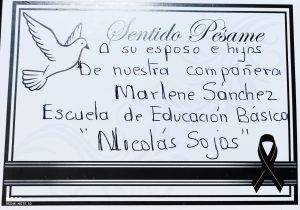 Sentido Pésame
A su esposo e hijos
De nuestra compañera
Marlene Sánchez
Escuela de Educación Básica
"Nicolás Sojos"